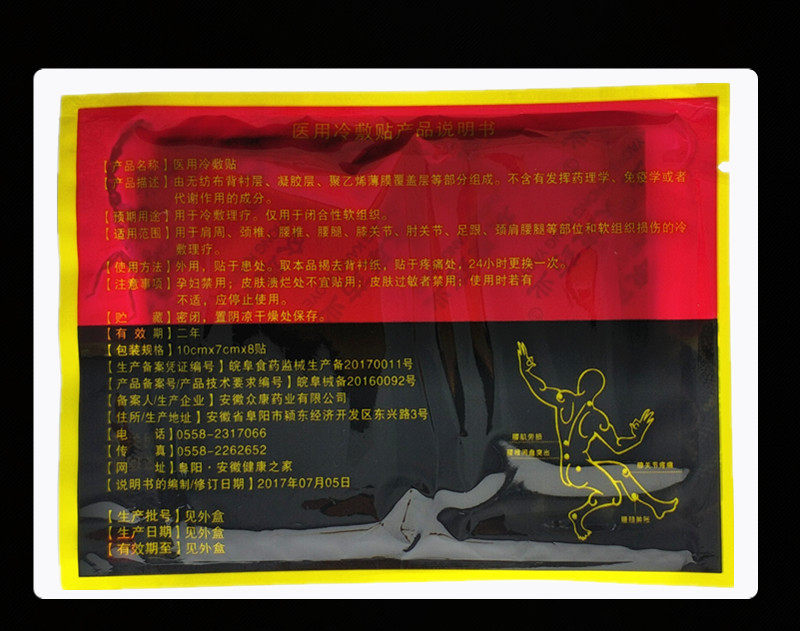 医用冷敷贴产品说明书
【产品名称】医用冷敷贴
【产品描述】由无纺布背衬层、凝胶层、聚乙烯薄膜覆盖层等部分组成。不含有发挥药理学、免疫学或者
代谢作用的成分。
【预期用途】用于冷敷理疗。仅用于闭合性软组织。
【适用范围】用于肩周、颈椎、腰椎、腰腿、膝关节、肘关节、足跟、颈肩腰腿等部位和软组织损伤的冷
敷理疗。
【使用方法】外用，贴于患处。取本品揭去背衬纸，贴于疼痛处，24小时更换一次。
【注意事项】孕妇禁用；皮肤溃烂处不宜贴用；皮肤过敏者禁用；使用时若有
不适，应停止使用。
【贮 藏】密闭，置阴凉干燥处保存。
【有 效 期】二年
【包装规格】10cmx7cmx8贴
【生产备案凭证编号】皖阜食药监械生产备20170011号
【产品备案号/产品技术要求编号】皖阜械备20160092号
【备案人/生产企业】安徽众康药业有限公司
【住所/生产地址】安徽省阜阳市颍东经济开发区东兴路3号
【电 话】0558-2317066
【传 真】0558-2262652
【网 址】阜阳·安徽健康之家
【说明书的编制/修订日期】2017年07月05日
腰肌劳损
腰椎间盘突出
膝关节疼痛
【生产批号】见外盒
【生产日期】见外盒
【有效期至】见外盒